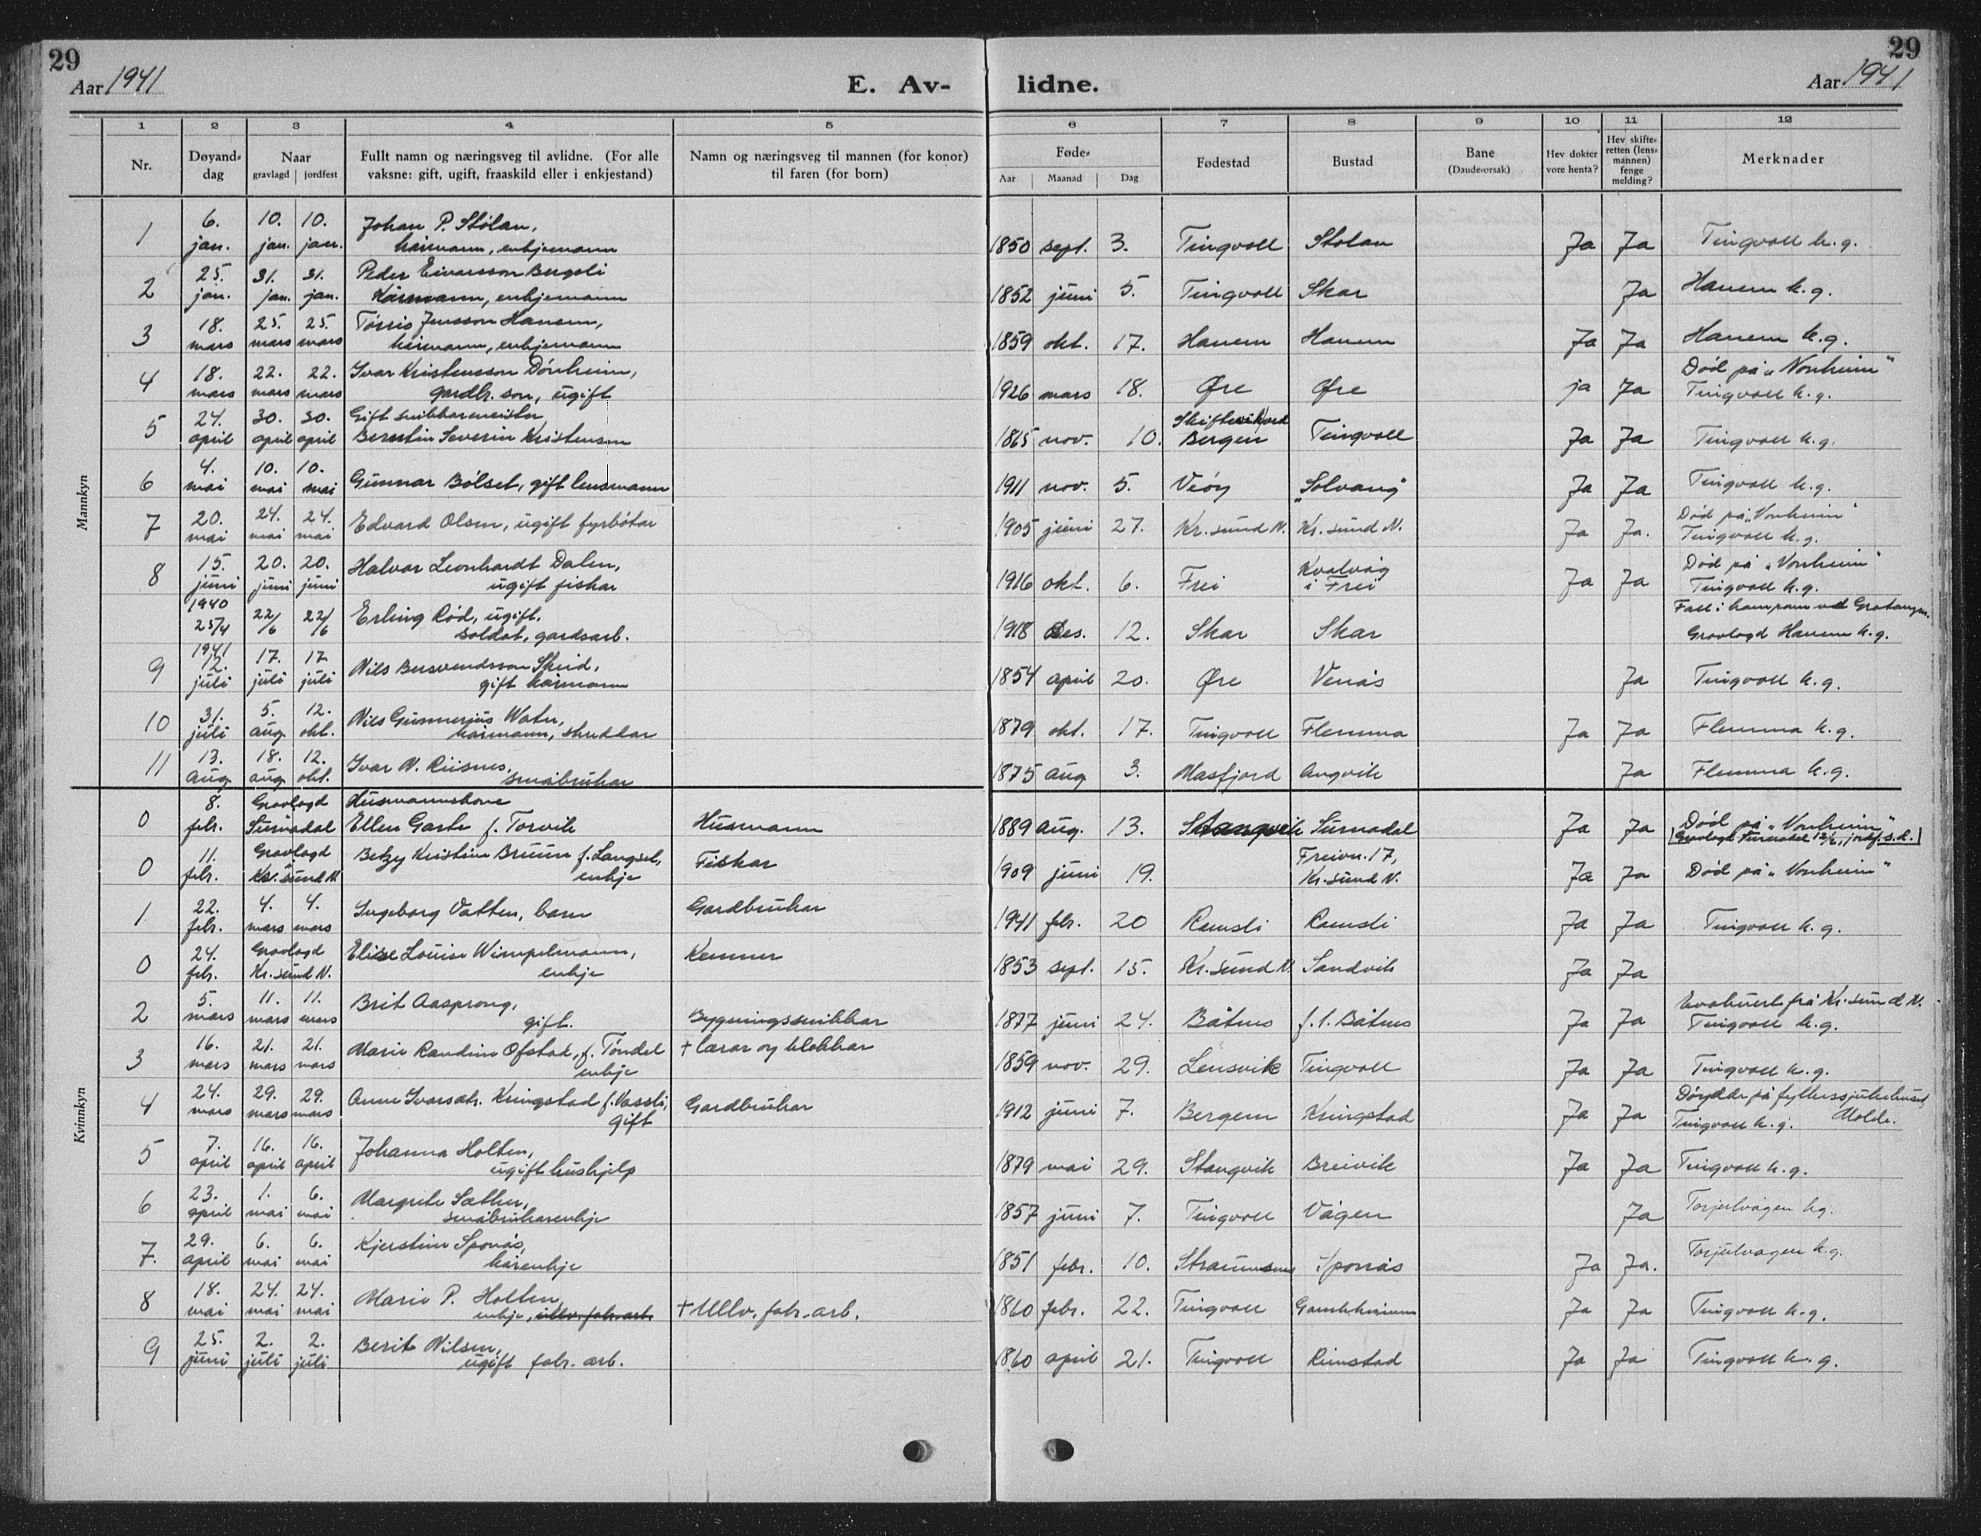 29
Aar 1941
E. Av-
lidne.
29
Aar 1941
1 2 3 4 5 6 7 8 9 10 11 12
Nr.
Døyand-
dag
Naar
gravlagd jordfest
Fullt namn og næringsveg til avlidne. (For alle
vaksne: gift, ugift, fraaskild eller i enkjestand)
Namn og næringsveg til mannen (for konor)
til faren (for born)
Føde-
Aar Maanad Dag
Fødestad
Bustad
Bane
(Daudeorsak)
Hev dokter
vore henta?
Hev skifte-
retten (lens-
mannen)
fenge
melding?
Merknader
Mannkyn
1 6. jan. 10. jan. 10. jan. Johan P. Stølan,
kårmann, enkjemann 1850 sept. 3. Tingvoll Stolan Ja Ja Tingvoll k.g.
2 25. jan. 31. jan. 31. jan. Peder Eivarsson Bergsli
Kårmann, enkjemann 1852 juni 5. Tingvoll Skar Ja Hanem k.g.
3 18. mars 25. mars 25. mars Tørris Jensson Hanem,
kårmann, enkjemann 1859 okt. 17. Hanem Hanem Ja Ja Hanem k.g.
4 18. mars 22. mars 22. mars Ivar Kristensson Dønheim,
gardbr. son, ugift 1926 mars 18. Øre Øre ja Ja Død på "Vonheim"
Tingvoll k.g.
5 24. april 30. april 30. april Gift snikkarmeister
Berntin Severin Kristensen 1865 nov. 10. Bergen Tingvoll Ja Ja Tingvoll k.g.
6 4. mai 10. mai 10. mai Gunnar Bølset, gift lensmann 1911 nov. 5. Veøy "Solvang" Ja Ja Tingvoll k.g.
7 20. mai 24. mai 24. mai Edvard Olsen, ugift fyrbøtar 1905 juni 27. Kr.sund N. Kr.sund N. Ja Ja. Død på "Vonheim"
Tingvoll k.g.
8 15. juni 20. juni 20. juni Halvar Leonhardt Dalen,
ugift fiskar 1916 okt. 6. Frei Kvalvåg
i Frei Ja Ja Død på "Vonheim"
Tingvoll k.g.
1940
25/4 22/6 22/6 Erling Rød, ugift,
soldat, gardsarb. 1918 des. 12. Skar Skar Fall i kampane ved Gratangen.
Gravlagd Hanem k.g.
1941
9 12. juli 17. juli 17 juli Nils Bersvendsson Skeid,
gift kårmann 1854 april 20. Øre Venås Ja Tingvoll k.g.
10 31. juli 5. aug. 12. okt. Nils Gunnerius Water,
kårmann, skreddar 1879 okt. 17. Tingvoll Flemma Ja Ja Flemma k.g.
11 13. aug. 18. aug. 12. okt. Ivar N. Riisnes,
småbrukar 1875 aug 3. Masfjord Angvik Ja Flemma k.g.
Kvinnkyn
0 8. febr. Gravlagd
Surnadal Husmannskone
Ellen Garte f. Torvik Husmann 1889 aug. 13. Stangvik Surnadal Ja Ja Død på "Vonheim"
0 11. febr. Gravlagd
Kr.sund N. Betzy Kristine Bruun f. Langset,
enkje Fiskar 1909 juni 19. Freivn. 17,
Kr.sund N. Ja Ja Død på "Vonheim"
1. 22. febr. 4. mars 4. mars Ingeborg Vatten, barn Gardbrukar 1941 febr. 20 Ramsli Ramsli Ja Ja Tingvoll k.g.
0 24. febr. Gravlagd
Kr.sund N. Elise Louise Wimpelmann,
enkje Kemner 1853 sept. 15. Kr.sund N. Sandvik Ja Ja
2 5. mars 11. mars 11. mars Brit Aasprong,
gift. Bygningssnikkar 1877 juni 24. Båtnes f. t. Båtnes Ja Ja Evakuert frå Kr.sund N.
Tingvoll k.g.
3 16. mars 21. mars 21. mars Marie Randine Ofstad, f. Tøndel
enkje + lærar og klokkar 1859 nov. 29. Lensvik Tingvoll Ja Ja Tingvoll k.g.
4 24. mars 29. mars 29. mars Anne Ivarsdtr. Kringstad f. Vassli,
gift Gardbrukar 1912 juni 7. Bergem Kringstad Ja Ja Døydde på fylkessjukehuset,
Molde.
Tingvoll k.g.
5 7. april 16. april 16. april Johanna Holten,
ugift hushjelp 1879 mai 29. Stangvik Breivik Ja Ja Tingvoll k.g.
6 23. april 1. mai 6. mai Margrete Sæther,
småbrukarenkje 1857 juni 7. Tingvoll Vågen Ja Torjulvågen kg.
7. 29. april 6. mai 6. mai Kjerstine Sponås,
kårenkje 1851 febr. 10. Straumsnes Sponås Ja Ja. Torjulvågen k.g.
8 18. mai 24. mai 24. mai Marie P. Holten,
enkje, ullv. fabr. arb. + Ullv. fabr. arb. 1860 febr. 22. Tingvoll Gamleheimen Ja Ja Tingvoll k.g.
9 25. juni 2. juli 2. juli Berit Nilsen,
ugift fabr. arb. 1860 april 21. Tingvoll Rimstad Ja Ja Tingvoll k.g.